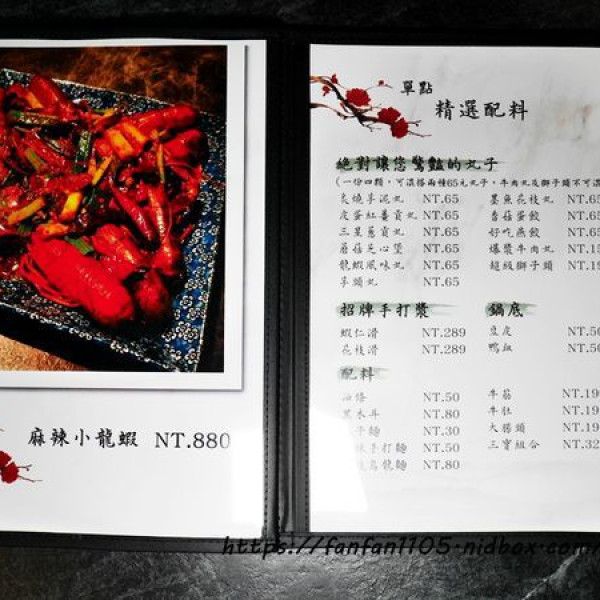 麻辣小龍蝦 NT.880
單點
精選配料
絕對讓您驚豔的丸子
(一份四顆，可混搭兩種65元丸子，牛肉丸及獅子頭不可混
炙燒芋泥丸 NT.65
皮蛋紅薯貢丸 NT.65
三星蔥貢丸 NT.65
蘑菇芝心堡 NT.65
龍蝦風味丸 NT.65
芋頭丸 NT.65
墨魚花枝丸 NT.65
香菇蛋餃 NT.65
好吃燕餃 NT.65
爆漿牛肉丸 NT.1
超級獅子頭 NT.1
招牌手打漿
蝦仁滑 NT.289
花枝滑 NT.289
鍋底
豆皮 NT.50
鴨血 NT.50
配料
NT.50
黑木耳 NT.80
子麵 NT.30
手打麵 NT.50
烏龍麵 NT.80
牛筋 NT.19
牛肚 NT.19
大腸頭 NT.19
三寶組合 NT.32
https://fanfan1105.nidbox.com